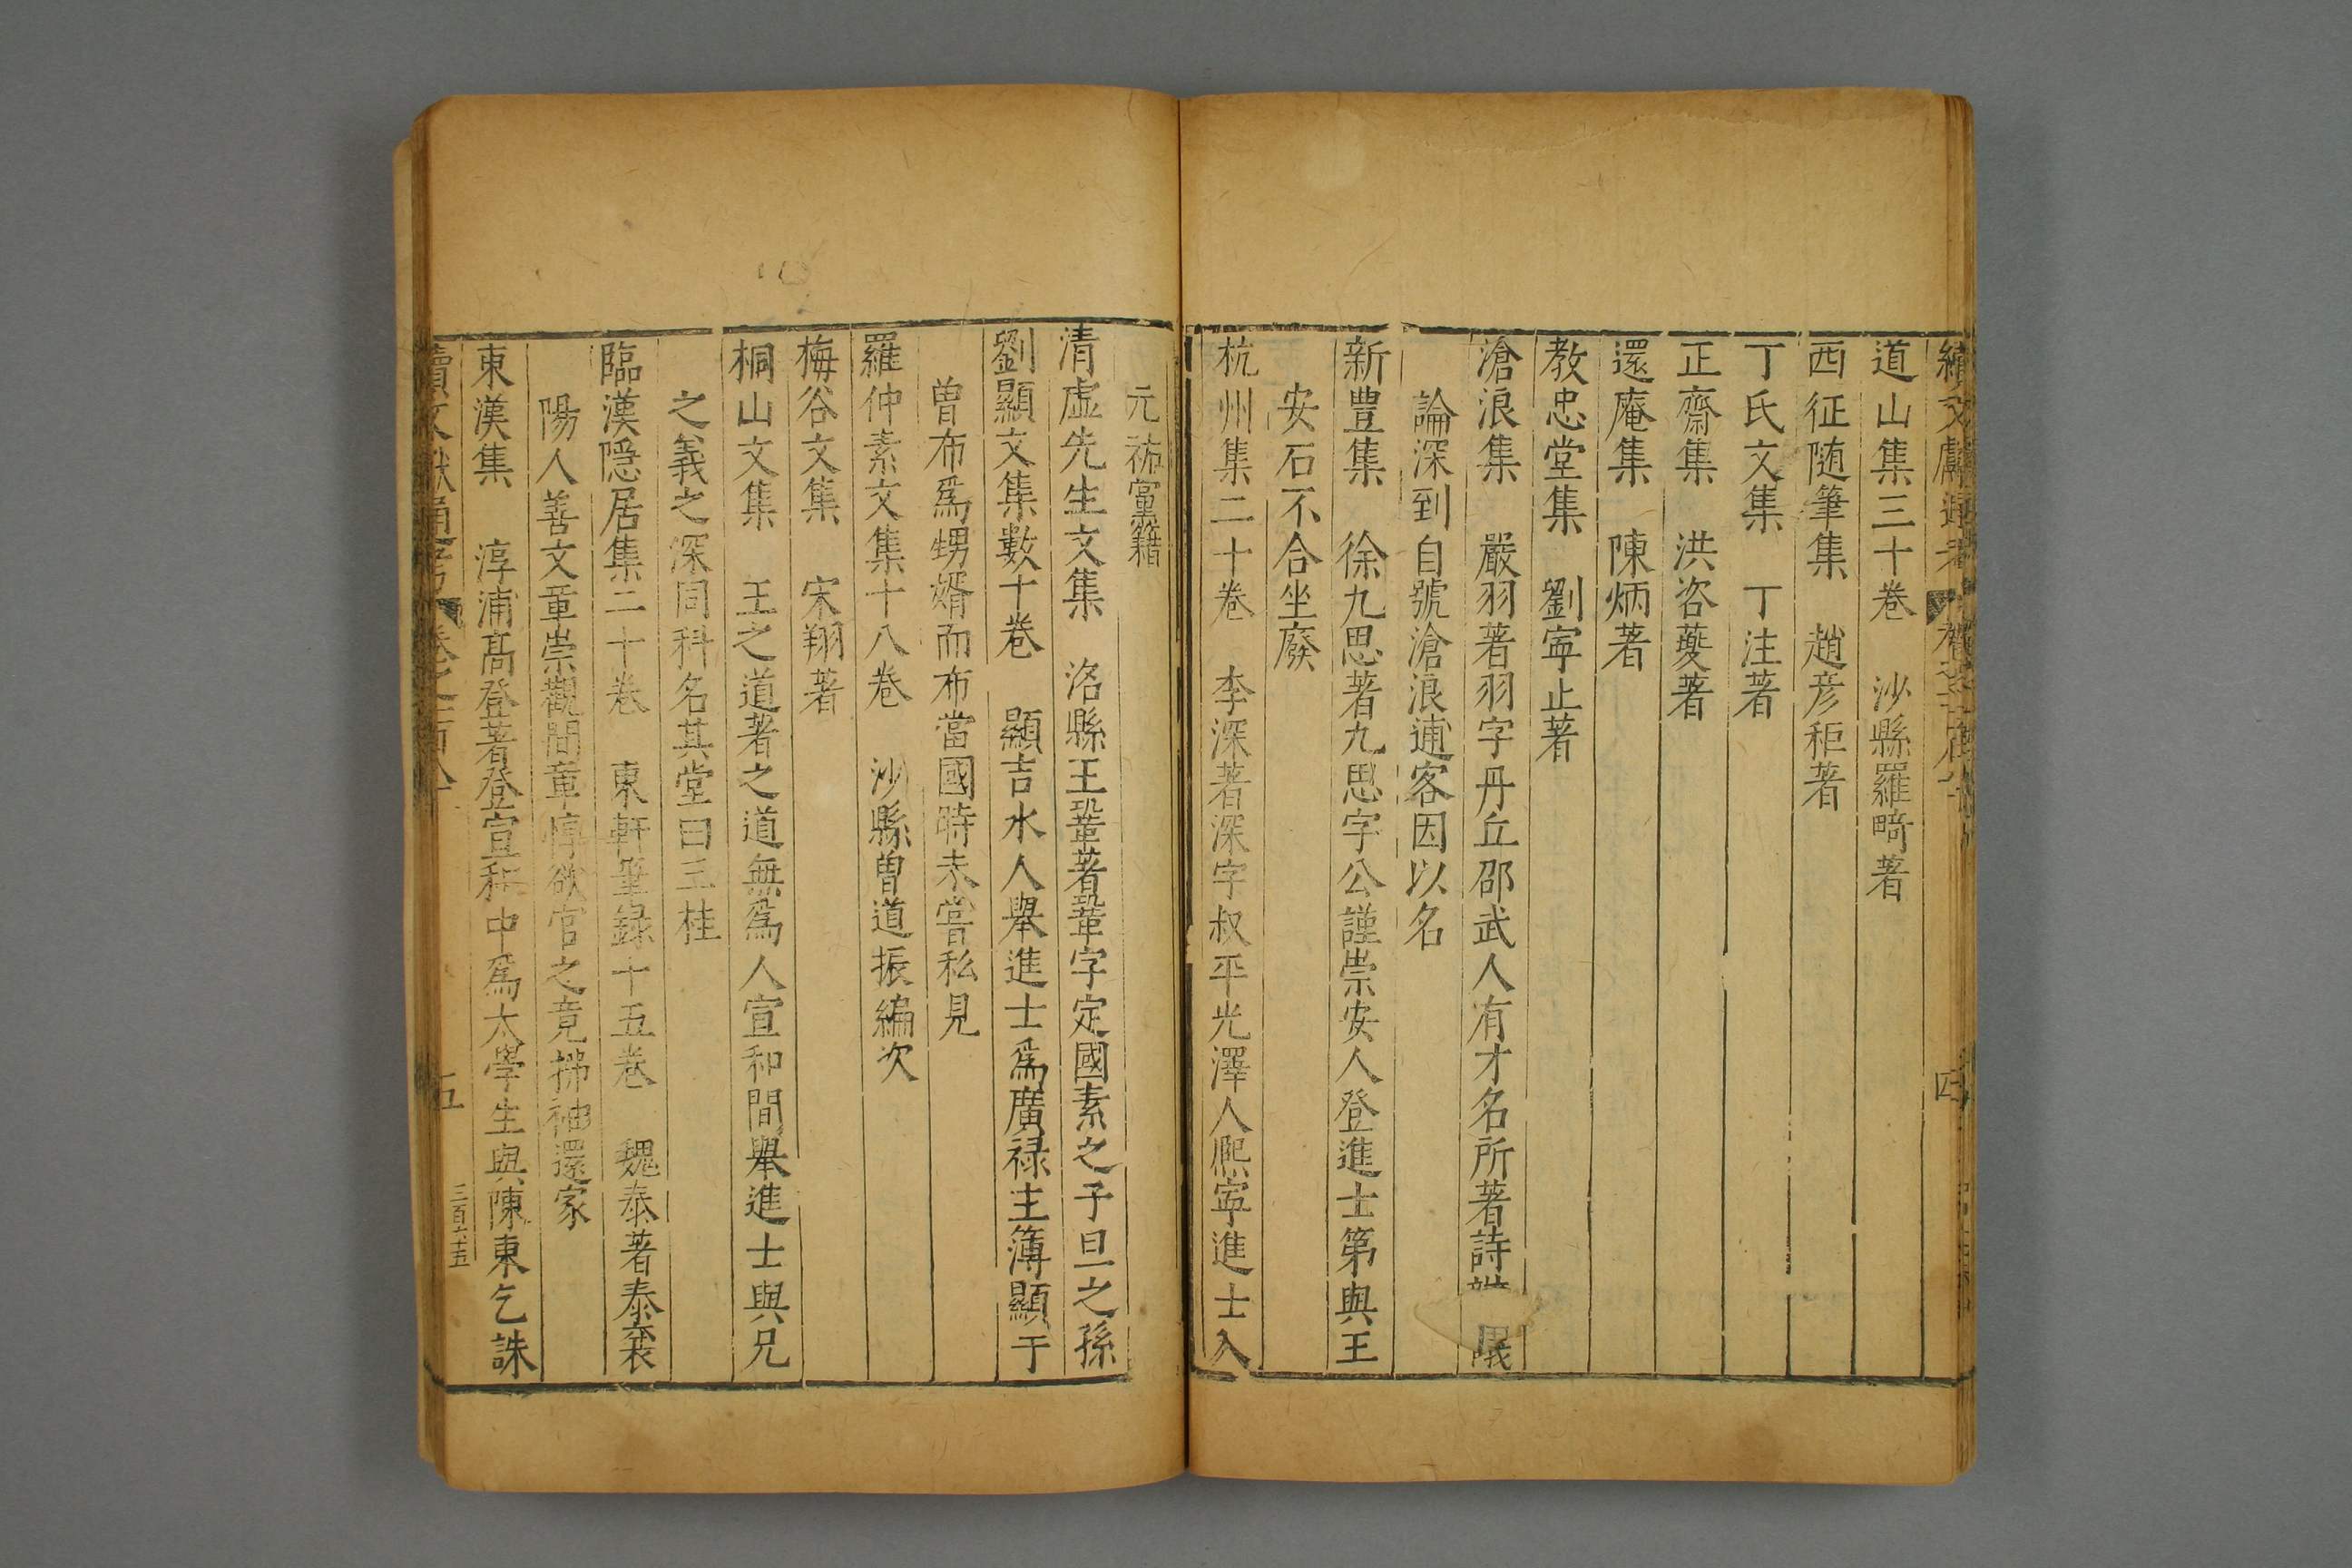 續文獻通考
四
道山集三十巻　沙縣羅畸著
西征随筆集　趙彦秬著
丁氏文集　丁注著
正齋集　洪咨夔著
還庵集　陳炳著
教忠堂集　劉寜止著
滄浪集　嚴羽著羽字丹丘邵武人有才名所著詩議
論深到自號滄浪逋客因以名
新豊集　徐九思著九思字公謹崇安人登進士第與王
安石不合坐廢
杭州集二十巻　李深著深字叔平光澤人熈寜進士入
元祐黨籍
清虚先生文集　洛縣王鞏著鞏字定國素之子旦之孫
劉顯文集數十巻　顯吉水人舉進士爲廣禄主簿顯于
曽布爲甥婿而布當國時未甞私見
羅仲素文集十八巻　沙縣曽道振編次
梅谷文集　宋翔著
桐山文集　王之道著之道無爲人宣和間舉進士與兄
之義之深同科名其堂曰三桂
臨漢隠居集二十巻　東軒筆録十五巻　魏泰著泰襄
陽人善文章崇觀間章惇欲官之竟拂袖還家
東漢集　淳浦髙登著登宣和中爲太學生與陳東乞誅
續文獻通考　卷之一百八十
五
三百六十五